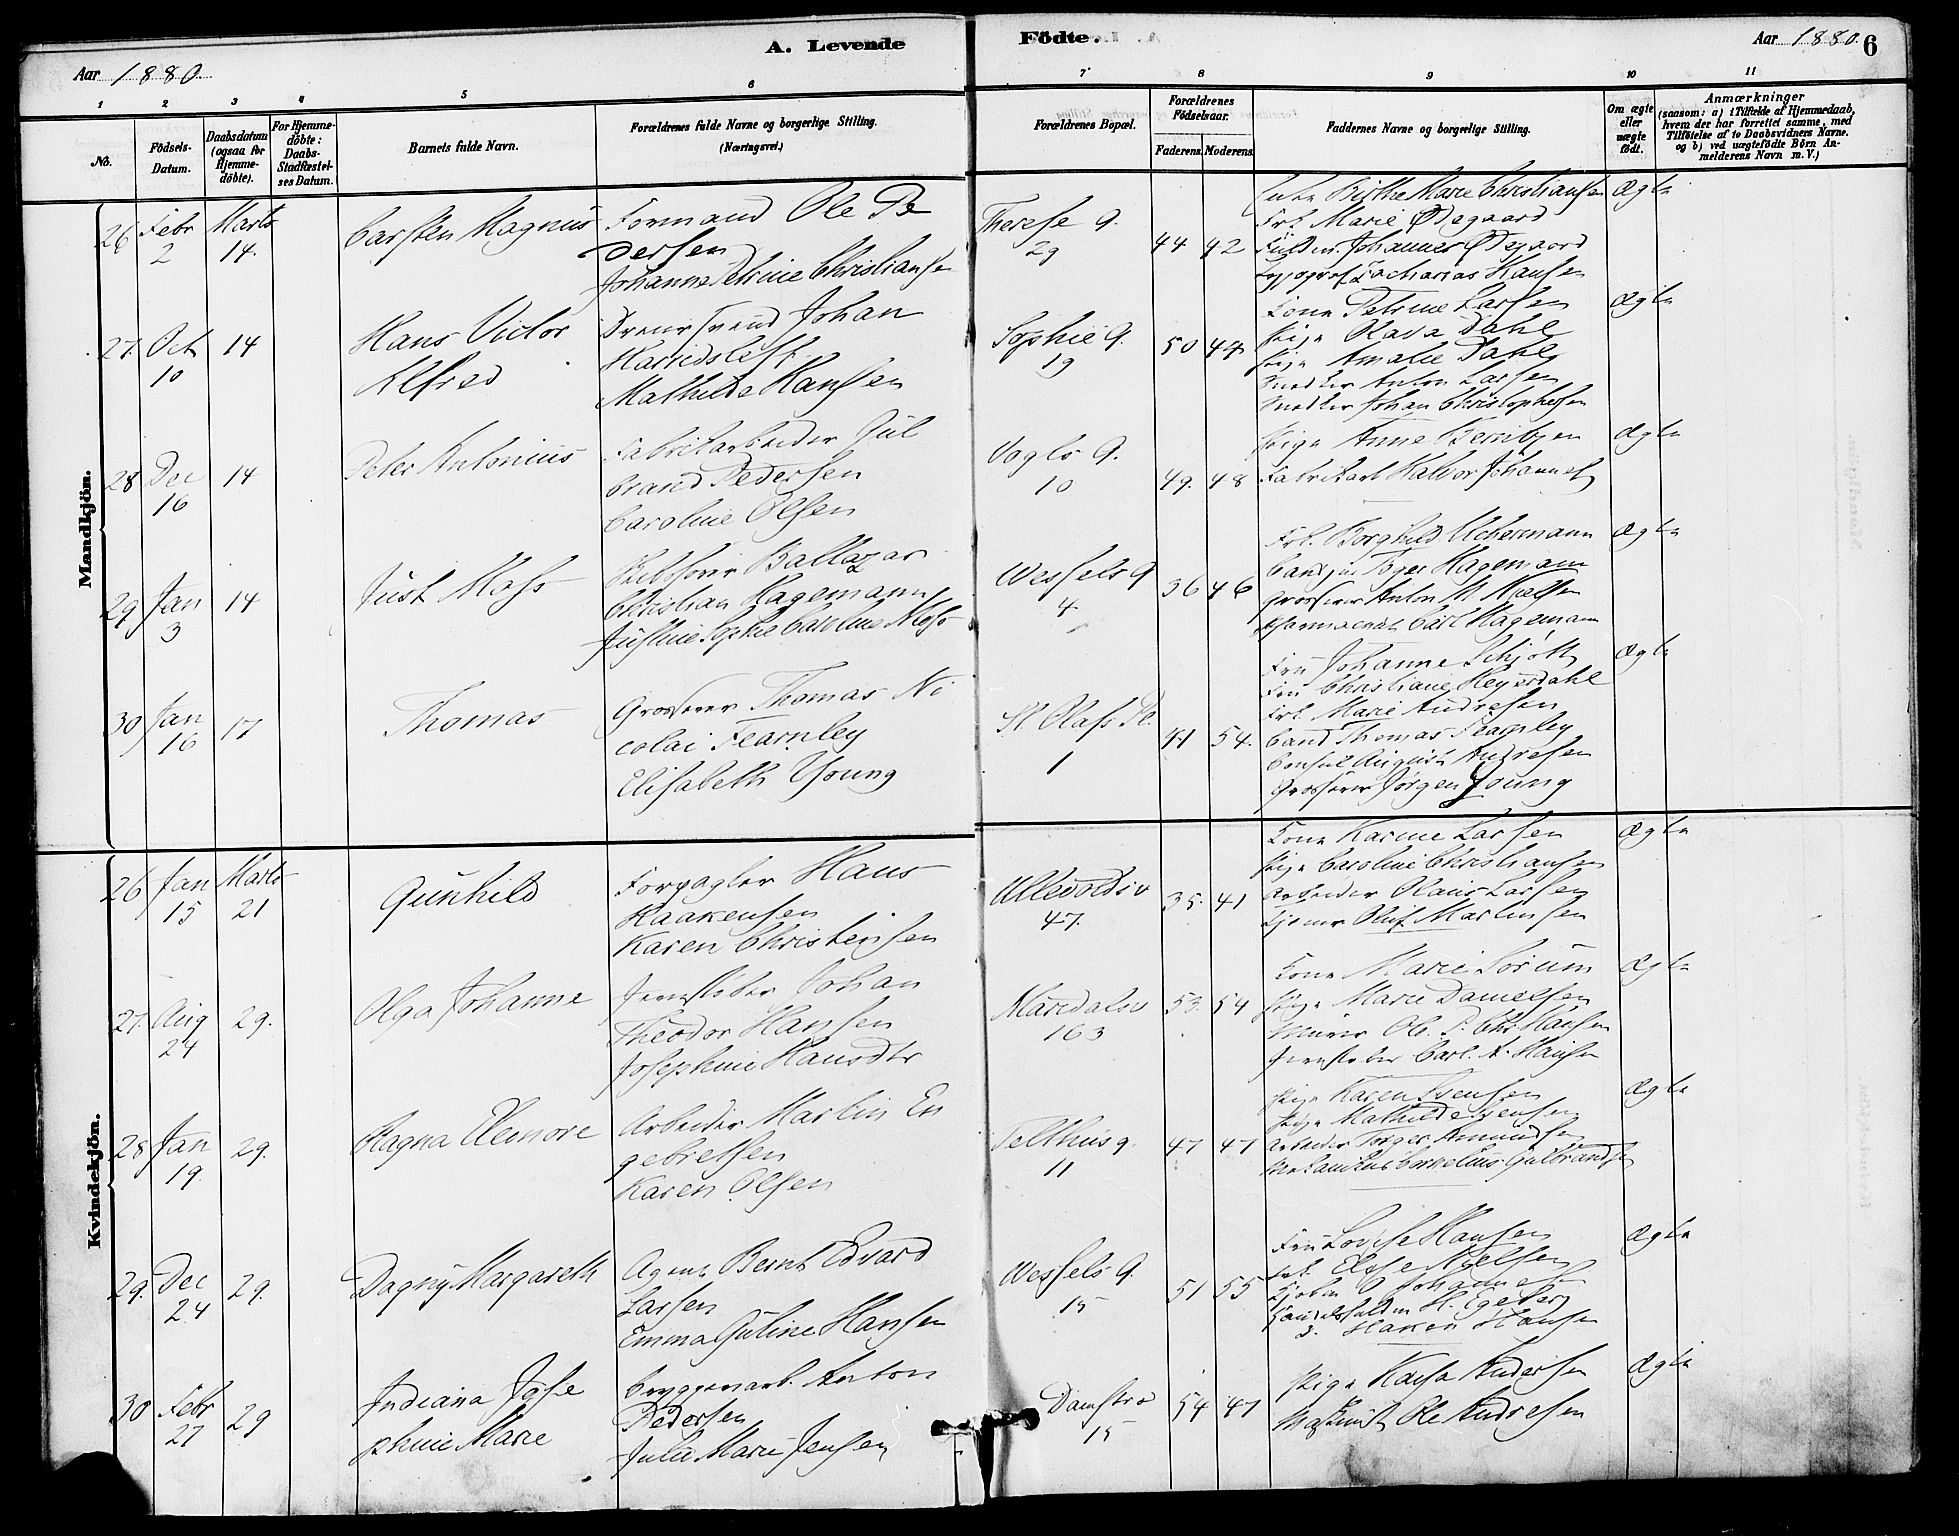 A. Levende
Födte.
Aar 1880.
Aar 1880.
6
1 2 3 4 5 6 7 8 9 10 11
No.
Födsels-Datum.
Daabsdatum (ogsaa for Hjemme-döbte).
For Hjemme-döbte: Daabs-Stadfæstel-ses Datum.
Barnets fulde Navn.
Forældrenes fulde Navne og borgerlige Stilling.
(Næringsvei.)
Forældrenes Bopæl.
Forældrenes Födselsaar.
Faderens. Moderens.
Faddernes Navne og borgerlige Stilling.
Om ægte eller uægte födt.
Anmærkninger
(saasom: a) i Tilfælde af Hjemmedaab,
hvem der har forrettet samme, med
Tilföielse af to Daabsvidners Navne.
og b) ved uægtefödte Börn An-
melderens Navn m. V.)
Mandkjön.
26 Febr 2 Marts 14.
Carsten Magnus
Formand Ole Pe
dersen
Johanne Petrine Christiansen
Therese G.
29
44 42
Birthe Marie Christiansen
Frk. Marie Ødegaard
Fuldm. Johannes Ødegaard
Typograf Zacharias Hansen
Ægte
27. Oct 10 14
Hans Victor
Alfred
Svend Johan
Mathilde Hansen
Sophie G.
19
50 44
Kone Petrine Larsen
Pige Olava Dahl
Pige Amalie Dahl
Snedker Anton Larsen
Snedker Johan Christophersen
Ægte
28 Dec 16 14
Peter Antonius
Fabrikarbeider Gul
brand Pedersen
Caroline Olsen
Vogts G.
10
49. 48
Pige Anne
Fabrikarb Halvor Johannes
Ægte
29 Jan 3 14
Just Moss
Baltazar
Christian Hagemann
Justine Sophie Caroline Moss
Wessels G
4
36 46
Frk. Borghild Uchermann
Hagemann
Grosserer Anton M. Nielsen
Pharmaceut Carl Hagemann
Ægte
30 Jan 16 17
Thomas
Grosserer Thomas Ni
colai Fearnley
Elisabeth Young
St Olafs Pl.
1
41 54.
Fru Johanne Schjøtt
Fru Christiane Heyerdahl
Frk. Marie Andresen
Cand Thomas Fearnley
Consul August Andresen
Grosserer Jørgen Young
Ægte
Kvindekjön.
26 Jan 15 Marts 21
Gunhild
Forpagter Hans
Haakensen
Karen Christensen
Ullevoldsv
47.
35. 41
Kone Karine Larsen
Pige Caroline Christiansen
Arbeider Olaus Larsen
Tjener Oluf Martinsen
Ægte
27. Aug 24 29.
Olga Johanne
Jernstøber Johan
Theodor Hansen
Josephine Hansdtr
Maridalsv
163
53. 54
Kone Marie Sørum
Pige Marie Danielsen
Murer Ole P. Chr. Hansen
Jernstøber Carl. A. Hansen
Ægte
28 Jan 19. 29.
Ragna Elenore
Arbeider Martin En
gebretsen
Karen Olsen
Telthusg.
11
47 47
Pige Karen Svensen
Pige Mathilde Svensen
Arbeider Torger Amundsen
Cornelius Gulbrandsen
Ægte
29. Dec 24 29.
Dagny Margareth
Agent Bernt Edvard
Larsen
Emma Guline Hansen
Wessels G.
15
51 55
Fru Lovise Hansen
Frk. Elise Nielsen
H. Egeberg
D. Haken Hansen
Ægte
30 Febr 27 29
Indiana Jose
phine Marie
Bryggerarb. Anton
Pedersen
Julie Marie Jensen
Damstræ
15
54 47
Pige Andersen
Maskinist Ole Andresen
Ægte